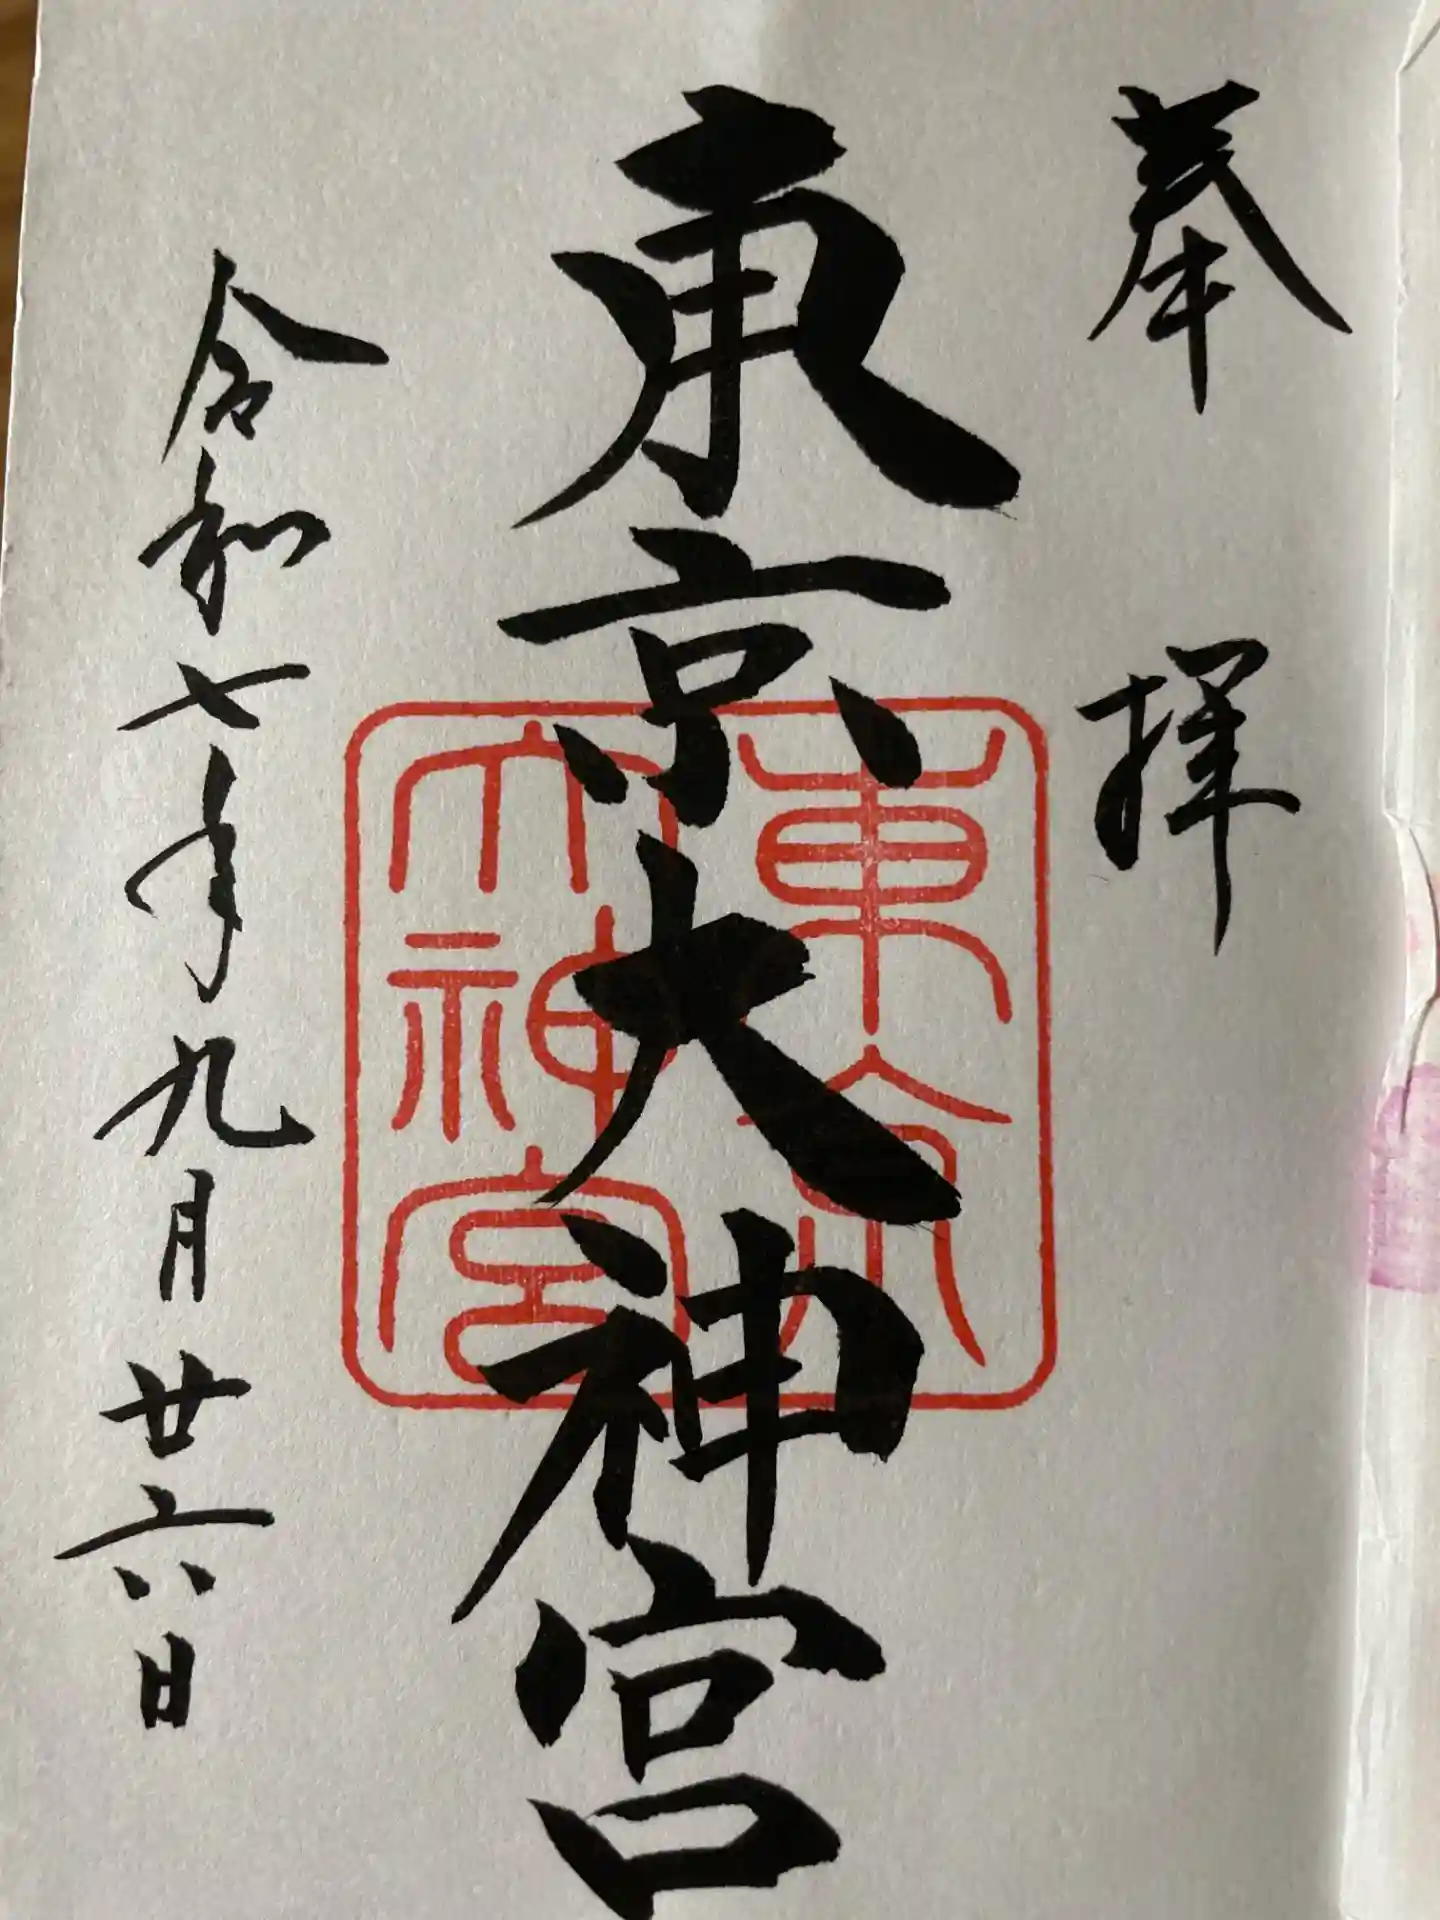 奉拝
東京大神宮
東京
大神宮
令和七年九月廿六日